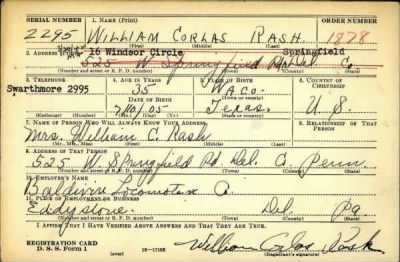 SERIAL NUMBER 1. NAME (Print) ORDER NUMBER
2295 WILLIAM CORLAS RASH. 1878
(First) (Middle) (Last)
16 Windsor Circle Springfield
2. ADDRESS (Print) 525 W Springfield Rd Del Co.
(Number and street or R. F. D. number) (Town) (County) (State)
3. TELEPHONE 4. AGE IN YEARS 5. PLACE OF BIRTH 6. COUNTRY OF CITIZENSHIP
Swarthmore 2995 35 WACO.
DATE OF BIRTH (Town or county)
Texas. U.S.
(Exchange) (Number) (Mo.) (Day) (Yr.) (State or country)
7. NAME OF PERSON WHO WILL ALWAYS KNOW YOUR ADDRESS 8. RELATIONSHIP OF THAT PERSON
Mrs. William C. Rash
(Mr., Mrs., Miss) (First) (Middle) (Last)
9. ADDRESS OF THAT PERSON
525 W. Springfield Rd. Del. Co. Penn
(Number and street or R. F. D. number) (Town) (County) (State)
10. EMPLOYER'S NAME
Baldwin Locomotive Co.
11. PLACE OF EMPLOYMENT OR BUSINESS
Eddystone. Del Pa.
(Number and street or R. F. D. number) (Town) (County) (State)
I AFFIRM THAT I HAVE VERIFIED ABOVE ANSWERS AND THAT THEY ARE TRUE.
REGISTRATION CARD
D. S. S. Form 1 16-17105 William Corlas Rash